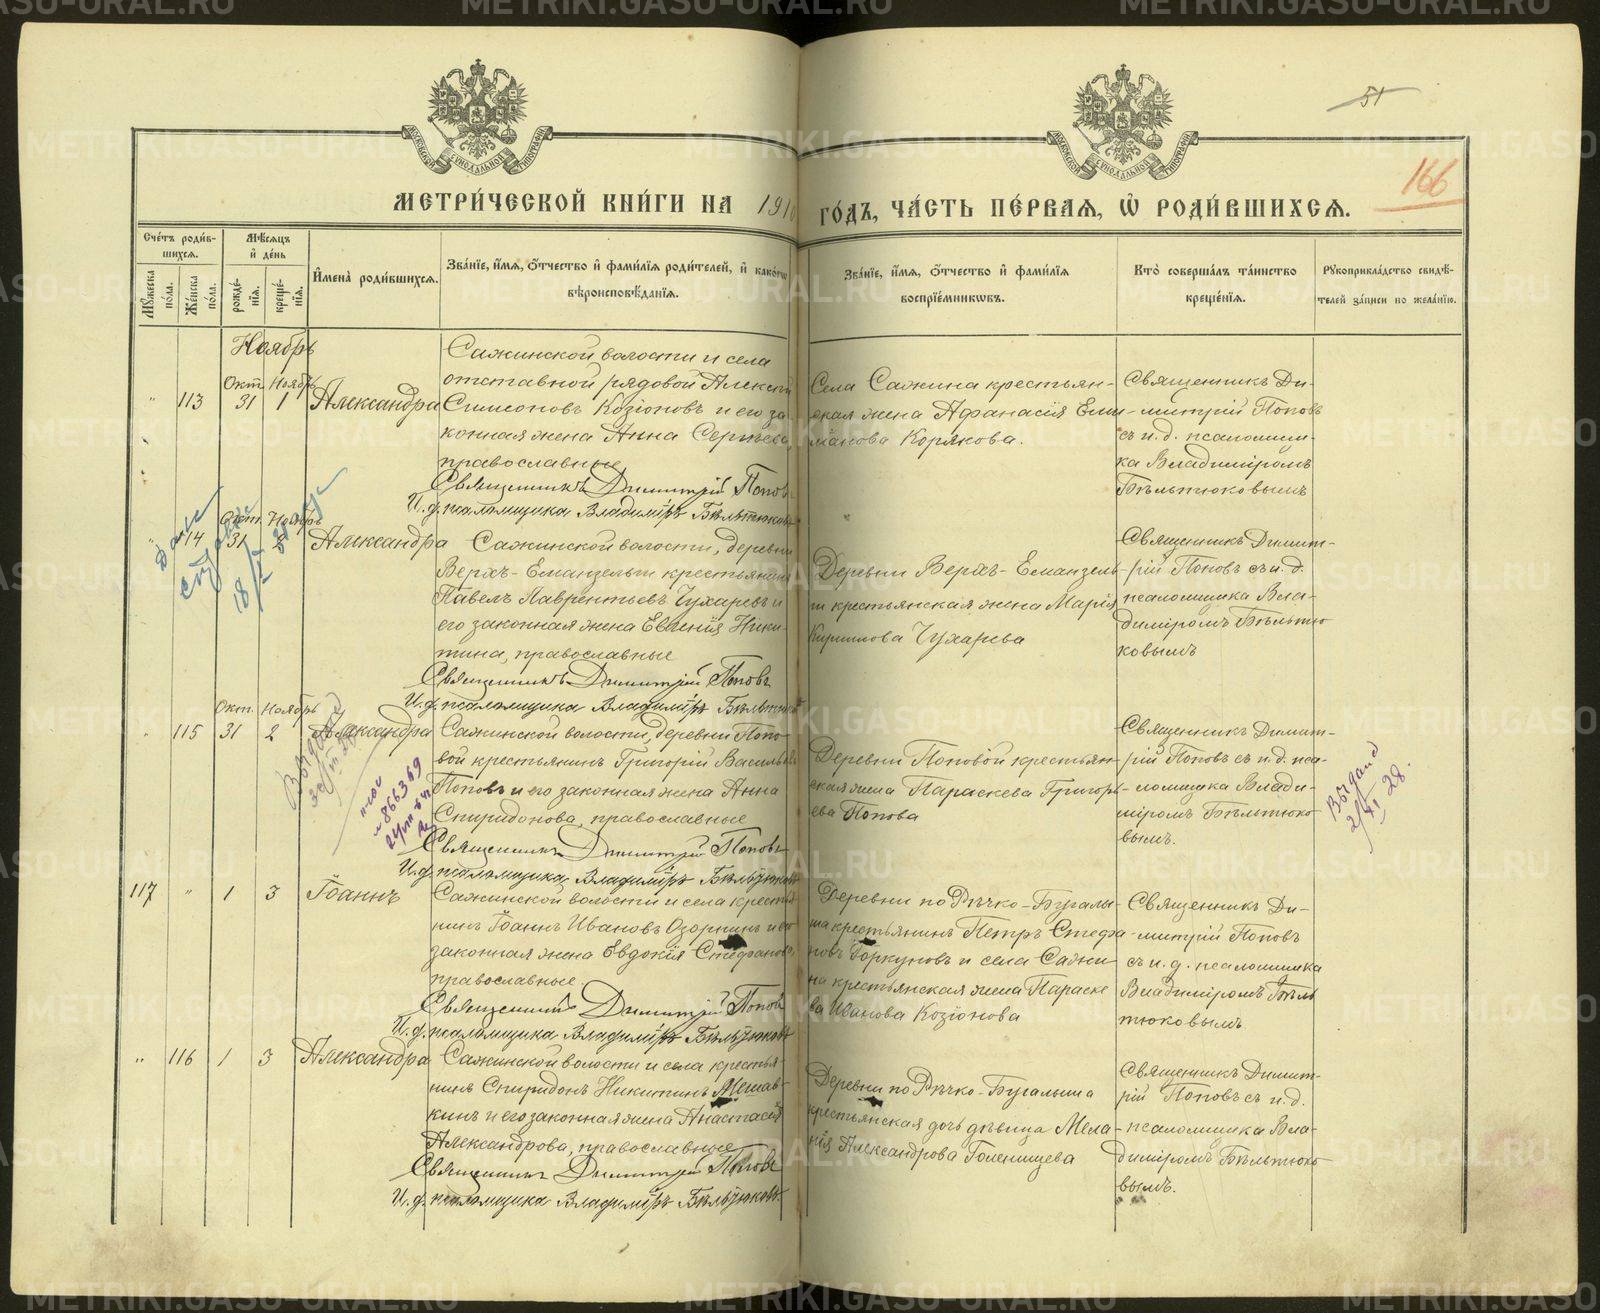 51
166
МЕТРИ́ЧЕСКОЙ КНИ́ГИ НА 1910
ГО́ДЪ, ЧА́СТЬ ПЕ́РВАЯ, Ѡ РОДИ́ВШИХСЯ.
Сче́тъ роди́вшихся.
Мѣ́сяцъ и҆ де́нь
И҆мена̀ роди́вшихся.
Зва́нїе, и҆́мя, ѻ҆́тчество и҆ фами́лїя роди́телей, и҆ како́гѡ
вѣроисповѣ́данїя.
Зва́нїе, и҆́мя, ѻ҆́тчество и҆ фами́лїя
воспрїе́мникѡвъ.
Кто̀ соверша́лъ та́инство
креще́нїя.
Рꙋкоприкла́дство свидѣ́телей за́писи по жела́нїю.
Мꙋ́жеска по́ла.
Же́нска по́ла.
рожде́нїя.
креще́нїя.
Ноябрь
Окт. Ноябрь
" 113 31 1 Александра
Сажинской волости и села
отставной рядовой Алексѣй
Симеоновъ Козіоновъ и его за-
конная жена Анна Сергѣева,
православные
Священникъ Димитрій Поповъ
И.д. псаломщика Владиміръ Бѣльтюковъ
Села Сажина крестьян-
ская жена Афанасія
Корякова.
Священникъ Ди-
митрій Поповъ
съ и.д. псаломщи-
ка Владиміромъ
Бѣльтюковымъ
Окт. Ноябрь
114 31 Александра
Сажинской волости, деревни
Верхъ-Еманзельги крестьянинъ
Павелъ Лаврентьевъ Чухаревъ и
его законная жена Евгенія Ники-
тина, православные
Священникъ Димитрій Поповъ
И.д. псаломщика Владиміръ Бѣльтюковъ
Деревни Верхъ-Еманзель-
ги крестьянская жена Марія
Кириллова Чухарева
Священникъ Димит-
рій Поповъ съ и.д.
псаломщика Вла-
диміромъ Бѣльтю-
ковымъ
Окт. Ноябрь
115 31 2 Александра
Сажинской волости, деревни Попо-
вой крестьянинъ Григорій Васильевъ
Поповъ и его законная жена Анна
Спиридонова, православные
Священникъ Димитрій Поповъ
И.д. псаломщика Владиміръ Бѣльтюковъ
Деревни Поповой крестьян-
ская жена Параскева Григорь-
ева Попова
Священникъ Димит-
рій Поповъ съ и.д. пса-
ломщика Влади-
міромъ Бѣльтюко-
вымъ.
Выдано
28.
117 " 1 3 Іоаннъ
Сажинской волости и села крестья-
нинъ Іоаннъ Ивановъ Озорнинъ и его
законная жена Евдокія Стефанова,
православные.
Священникъ Димитрій Поповъ
И.д. псаломщика Владиміръ Бѣльтюковъ
Деревни по Рѣчко-Бугалы-
ша крестьянинъ Петръ Стефа-
новъ Горкуновъ и села Сажи-
на крестьянская жена Параске-
ва Иванова Козіонова
Священникъ Ди-
митрій Поповъ
съ и.д. псаломщика
Владиміромъ Бѣль-
тюковымъ
" 116 1 3 Александра
Сажинской волости и села крестья-
нинъ Спиридонъ Никитинъ Мешав-
кинъ и его законная жена Анастасія
Александрова, православные
Священникъ Димитрій Поповъ
И.д. псаломщика Владиміръ Бѣльтюковъ
Деревни по Рѣчко-Бугалыша
крестьянская дочь дѣвица Мела-
нія Александрова Голенищева
Священникъ Димит-
рій Поповъ съ и.д.
псаломщика Вла-
диміромъ Бѣльтюко-
вымъ.
METRIKI.GASO-URAL.RU